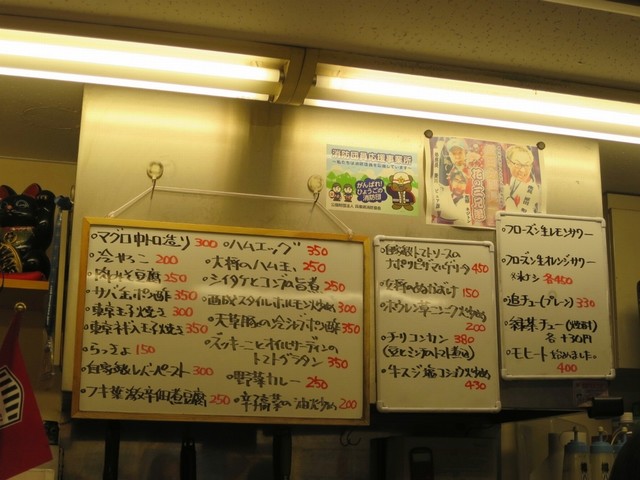 消防団員応援事業所
がんばれ!
ひょうごの
消防団
・マグロ中トロ造り 300
・冷やっこ 200
・肉みそ豆腐 250
・サバ玉ポン酢 350
・東京玉子焼き 300
・東京ネギ入玉子焼き 350
・らっきょ 150
・自家製レバーペースト 300
・フキ葉激辛佃煮豆腐 250
・ハムエッグ 350
・大将のハム玉、 250
・シイタケとコンブの旨煮 250
・西成スタイルホルモン炒め 300
・天草豚の冷シャブポン酢 350
・ズッキーニとオイルサーディンの
トマトグラタン 350
・野菜カレー 250
・辛子高菜の油炒め 200
・自家製トマトソースの
ナポリピザマルゲリータ 450
150
・ホウレン草ニンニク炒め
200
・チリコンカン 380
(豆とミンチのトマト煮込)
・牛スジ塩コショウ炒め
430
・フローズン生レモンサワー
・フローズン生オレンジサワー
各400
・追チュー(プレーン) 330
各+30円
・モヒート 始めました。
400